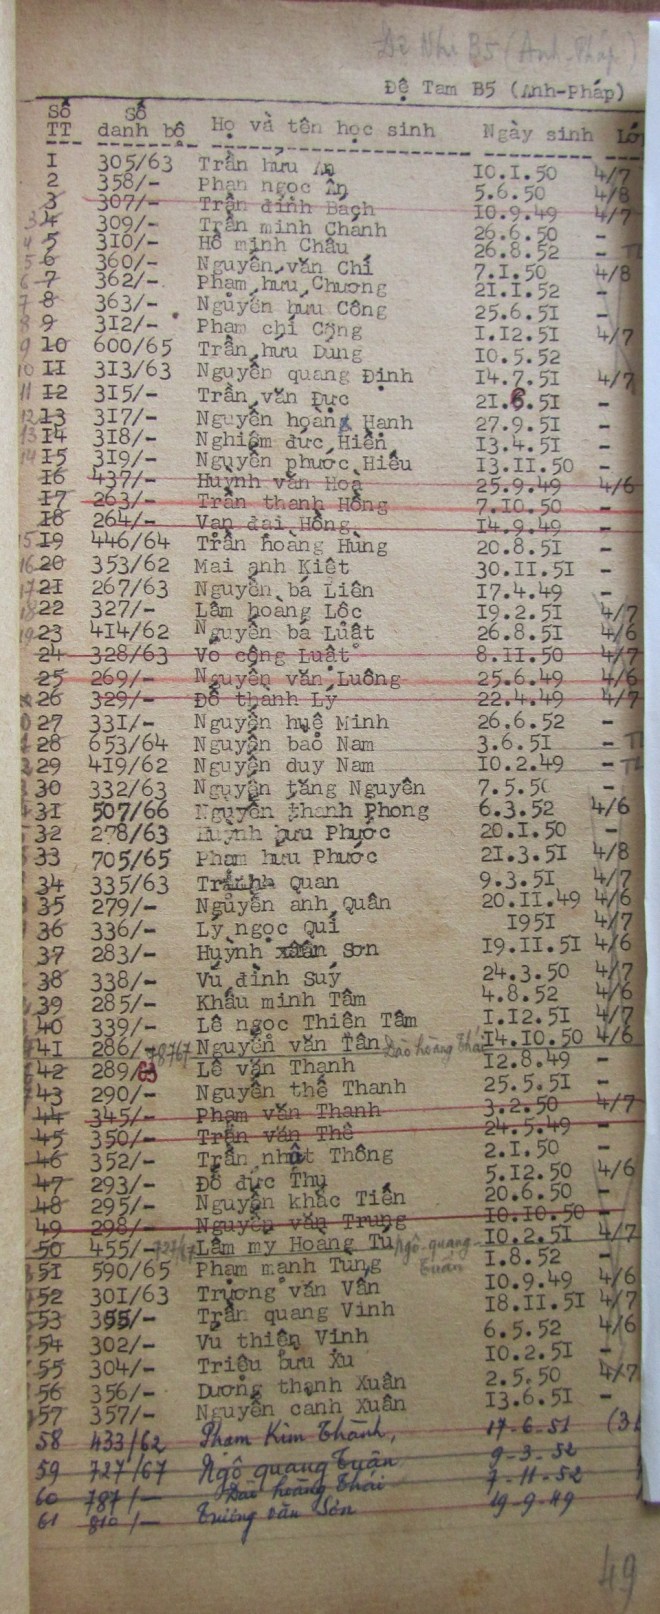 Đệ Nhị B5 (Anh-Pháp)
Đệ Tam B5 (Anh-Pháp)
Số TT Số danh bộ Họ và tên học sinh Ngày sinh Lớp
I 305/63 Trần hữu Ân 10.I.50 4/7
2 358/- Phan ngọc Ẩn 5.6.50 4/8
3 307/- Trần đình Bạch 10.9.49 4/7
3 4 309/- Trần minh Chánh 26.6.50 -
4 5 310/- Hồ minh Châu 26.8.52 -
5 6 360/- Nguyễn văn Chí 7.I.50 4/8
6 7 362/- Phạm hữu Chương 2I.I.52 -
7 8 363/- Nguyễn hữu Công 25.6.5I -
8 9 3I2/- Phạm chí Cộng I.I2.5I 4/7
9 10 600/65 Trần hữu Dũng 10.5.52
10 II 3I3/63 Nguyễn quang Định I4.7.5I 4/7
11 I2 3I5/- Trần văn Đực 2I.6.5I -
12 I3 3I7/- Nguyễn hoàng Hạnh 27.9.5I -
13 I4 3I8/- Nghiêm đức Hiền I3.4.5I -
14 I5 3I9/- Nguyễn phước Hiếu I3.II.50 -
I6 437/- Huỳnh văn Hoà 25.9.49 4/6
I7 263/- Trần thanh Hồng 7.10.50 -
I8 264/- Vạn đại Hồng I4.9.49 -
15 I9 446/64 Trần hoàng Hùng 20.8.5I -
16 20 353/62 Mai anh Kiệt 30.II.5I -
17 2I 267/63 Nguyễn bá Liên I7.4.49 -
18 22 327/- Lâm hoàng Lộc I9.2.5I 4/7
19 23 4I4/62 Nguyễn bá Luật 26.8.5I 4/6
24 328/63 Võ công Luật 8.II.50 4/7
25 269/- Nguyễn văn Luông 25.6.49 4/6
26 329/- Đỗ thành Lý 22.4.49 4/7
27 33I/- Nguyễn huệ Minh 26.6.52 -
28 653/64 Nguyễn bảo Nam 3.6.5I -
29 4I9/62 Nguyễn duy Nam 10.2.49 -
30 332/63 Nguyễn tăng Nguyên 7.5.50 -
3I 507/66 Nguyễn thanh Phong 6.3.52 4/6
32 278/63 Huỳnh hữu Phước 20.I.50 -
33 705/65 Phạm hữu Phước 2I.3.5I 4/8
34 335/63 Quan 9.3.5I 4/7
35 279/- Nguyễn anh Quân 20.II.49 4/6
36 336/- Lý ngọc Quí I95I 4/7
37 283/- Huỳnh Sơn I9.II.5I 4/6
38 338/- Vũ đình Suý 24.3.50 4/7
39 285/- Khấu minh Tâm 4.8.52 4/6
40 339/- Lê ngọc Thiên Tâm I.I2.5I 4/7
4I 286/- 78767 Nguyễn văn Tân Đào hoàng Thái I4.10.50 4/6
42 289/63 Lê văn Thanh I2.8.49 -
43 290/- Nguyễn thế Thanh 25.5.5I -
44 345/- Phạm văn Thanh 3.2.50 4/7
45 350/- Trần văn Thế 24.5.49 -
46 352/- Trần nhật Thông 2.I.50 -
47 293/- Đỗ đức Thụ 5.I2.50 4/6
48 295/- Nguyễn khắc Tiến 20.6.50 -
49 298/- Nguyễn văn Trung 10.10.50 -
50 455/- 727/67 Lâm mỹ Hoàng Tú Ngô quang Tuấn 10.2.5I 4/7
5I 590/65 Phạm mạnh Tùng I.8.52 -
52 30I/63 Trương văn Vân 10.9.49 4/6
53 355/- Trần quang Vinh I8.II.5I 4/7
54 302/- Vũ thiện Vinh 6.5.52 4/6
55 304/- Triệu bửu Xu 10.2.5I -
56 356/- Dương thanh Xuân 2.5.50 4/7
57 357/- Nguyễn cảnh Xuân I3.6.5I -
58 433/62 Phạm Kim Thành, 17-6-51
59 727/67 Ngô quang Tuấn 9-3-52
60 787/- Đào hoàng Thái 7-11-52
61 810/- Trương văn Sơn 19-9-49
49